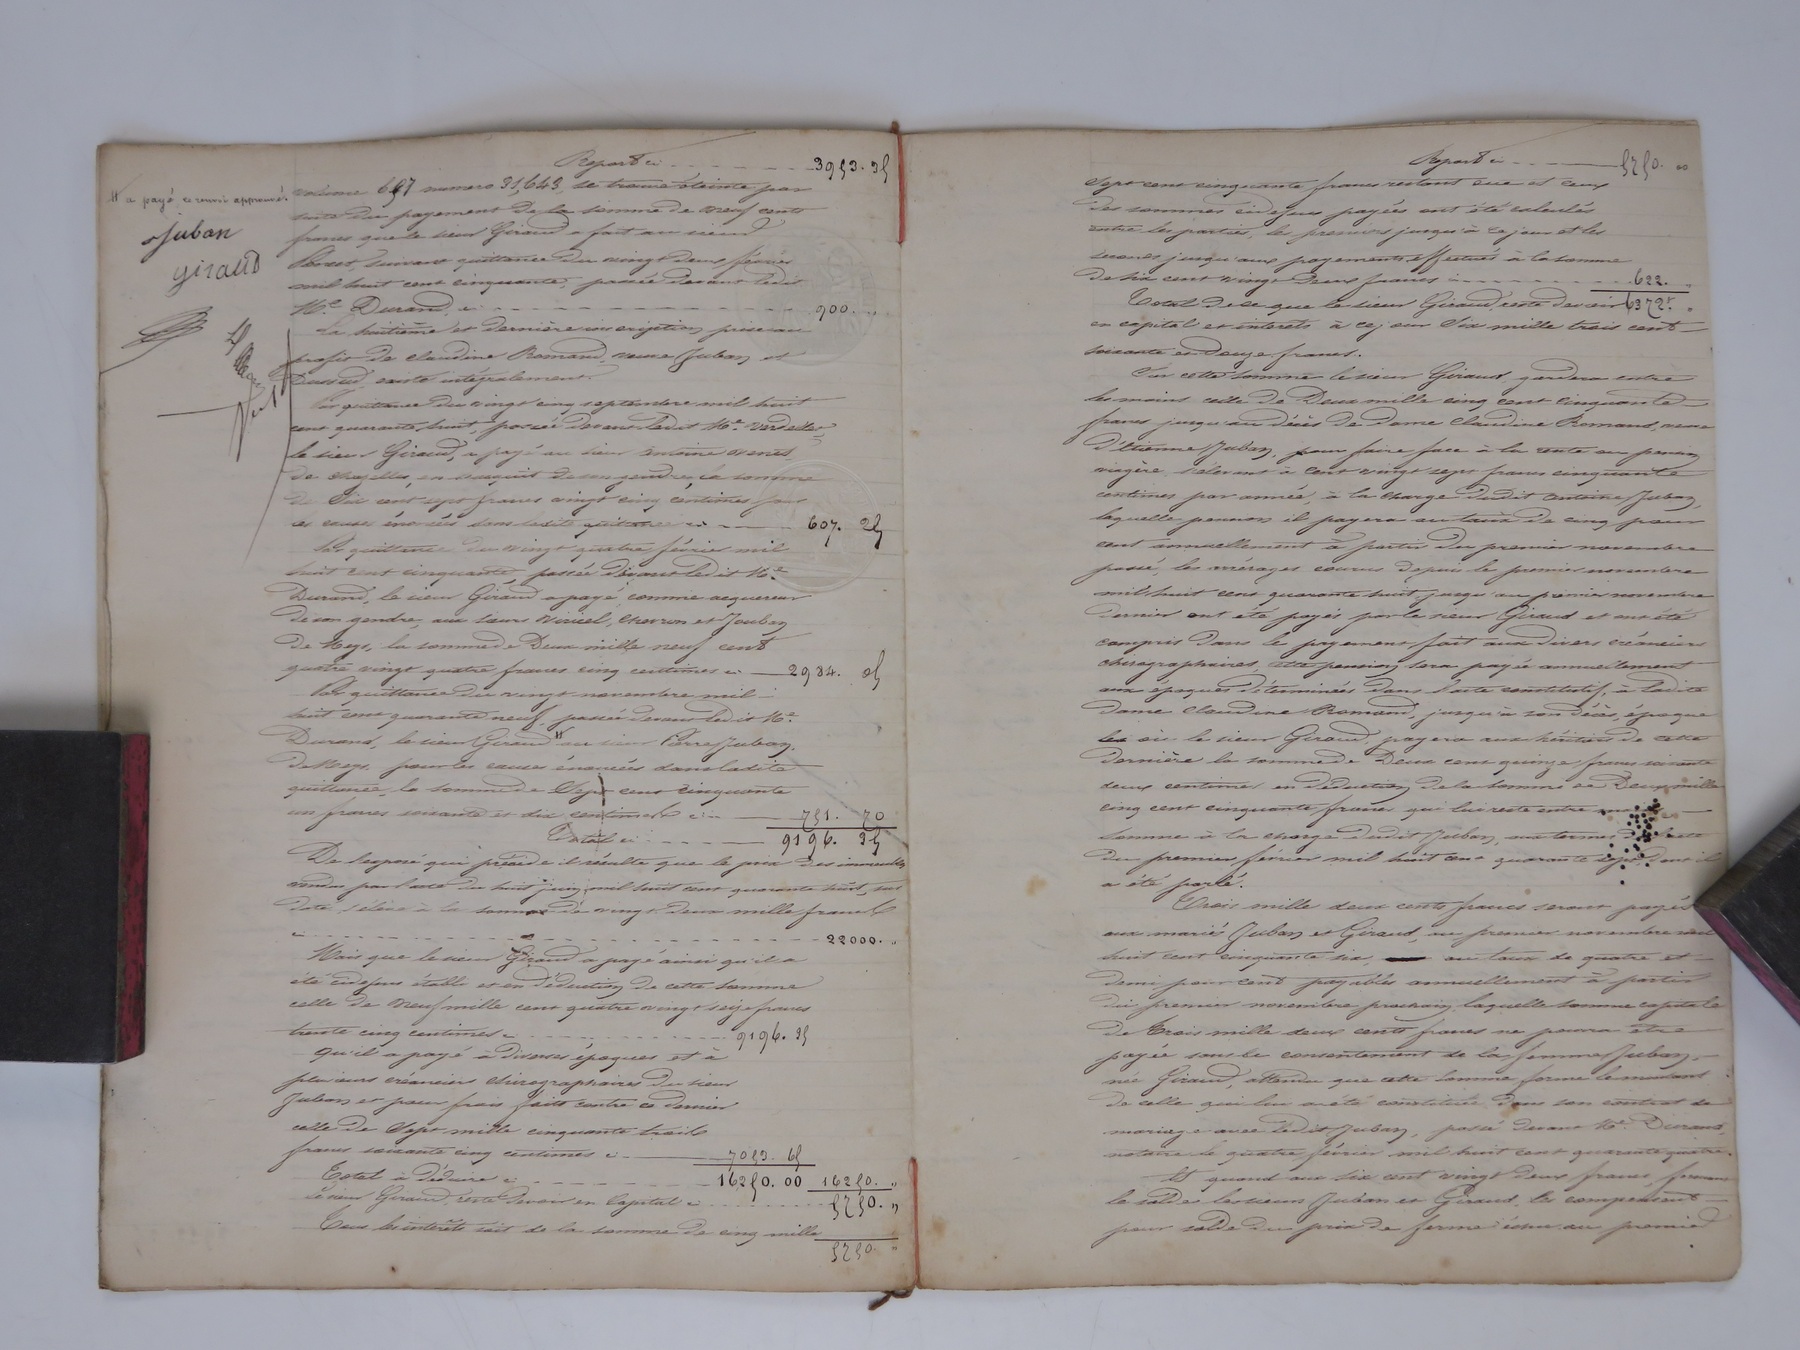 Report ci 3953. 35
# a payé ce renvoi approuvé.
Juban
giraud
volume 697 numéro 31,643, se trouve éteinte par
suite du payement de la somme de neuf cents
francs que le sieur Giraud a fait au sieur
suivant quittance du vingt deux février
mil huit cent cinquante, passée devant ledit
Me Durand, ci 900. "
La huitième et dernière inscription prise au
profit de Claudine Romand, veuve Juban et
existe intégralement.
Par quittance du vingt cinq septembre mil huit
cent quarante huit, passée devant ledit Me
le sieur Giraud, a payé au sieur Antoine
de en l'acquit de son gendre, la somme
de Six cent sept francs vingt cinq centimes pour
les causes énoncées dans ladite quittance ci 607. 25
Par quittance du vingt quatre février mil
huit cent cinquante, passée devant ledit Me
Durand, le sieur Giraud a payé, comme acquereur
de son gendre, aux sieurs Chevron et Jouban
de Meys, la somme de Deux mille neuf cent
quatre vingt quatre francs cinq centimes ci 2984. 05
Par quittance du vingt novembre mil
huit cent quarante neuf, passée devant ledit Me
Durand, le sieur Giraud # au sieur Pierre Juban,
de Meys, pour les causes énoncées dans ladite
quittance, la somme de Sept cent cinquante
un francs soixante et dix centimes ci 751. 70
Total ci 9196. 35
De l'exposé qui précède il résulte que le prix des immeubles
vendus par l'acte du huit juin mil huit cent quarante huit, sus
daté, s'élève à la somme de vingt deux mille francs
ci 22000. "
Mais que le sieur Giraud a payé ainsi qu'il a
été ci-dessus établi et en déduction de cette somme
celle de Neuf mille cent quatre vingt seize francs
trente cinq centimes ci 9196. 35
Qu'il a payé à diverses époques et à
plusieurs créanciers chirographaires du sieur
Juban et pour frais faits contre ce dernier
celle de Sept mille cinquante trois
francs soixante cinq centimes ci 7053. 65
Total à déduire ci 16250. 00 16250. "
le sieur Giraud, reste devoir en Capital ci 5750. "
Tous les intérêts soit de la somme de cinq mille
5750. "
Report ci 5750. "
sept cent cinquante francs restant due et ceux
des sommes ci-dessus payées ont été calculés
entre les parties, les premiers jusqu'à ce jour et les
seconds jusqu'aux payements effectués à la somme
de six cent vingt deux francs ci 622. "
Total de ce que le sieur Giraud, reste devoir 6372. "
en capital et intérêts à ce jour Six mille trois cent
soixante et douze francs.
Sur cette somme le sieur Giraud, gardera entre
les mains celle de Deux mille cinq cent cinquante
francs jusqu'au décès de Dame Claudine Romand, veuve
d'Etienne Juban, pour faire face à la rente ou pension
viagère, s'élevant à cent vingt sept francs cinquante
centimes par année, à la charge dudit Antoine Juban,
laquelle pension il payera au taux de cinq pour
cent annuellement à partir du premier novembre
passé, les arrérages courus depuis le premier novembre
mil huit cent quarante huit, jusqu'au premier novembre
dernier ont été payés par le sieur Giraud et ont été
compris dans le payement fait aux divers créanciers
chirographaires, cette pension sera payée annuellement
aux époques déterminées dans l'acte constitutif, à ladite
dame Claudine Romand, jusqu'à son décès, époque
où le sieur Giraud, payera aux héritiers de cette
dernière la somme de Deux cent quinze francs soixante
deux centimes en déduction de la somme de Deux mille
cinq cent cinquante francs qui lui reste entre mains
somme à la charge dudit Juban, aux termes de l'acte
du premier février mil huit cent quarante sept, dont il
a été parlé.
Trois mille deux cents francs seront payés
aux mariés Juban et Giraud, au premier novembre mil
huit cent cinquante six, au taux de quatre et
demi pour cent payables annuellement à partir
du premier novembre prochain, laquelle somme capitale
de Trois mille deux cents francs ne pourra être
payée sans le consentement de la femme Juban,
née Giraud, attendu que cette somme forme le montant
de celle qui lui a été constituée dans son contrat de
mariage avec ledit Juban, passé devant Me Durand,
notaire le quatre février mil huit cent quarante quatre.
Et quand aux six cent vingt deux francs formant
le solde les sieurs Juban et Giraud, les compensent
pour solde du prix de ferme échu au premier